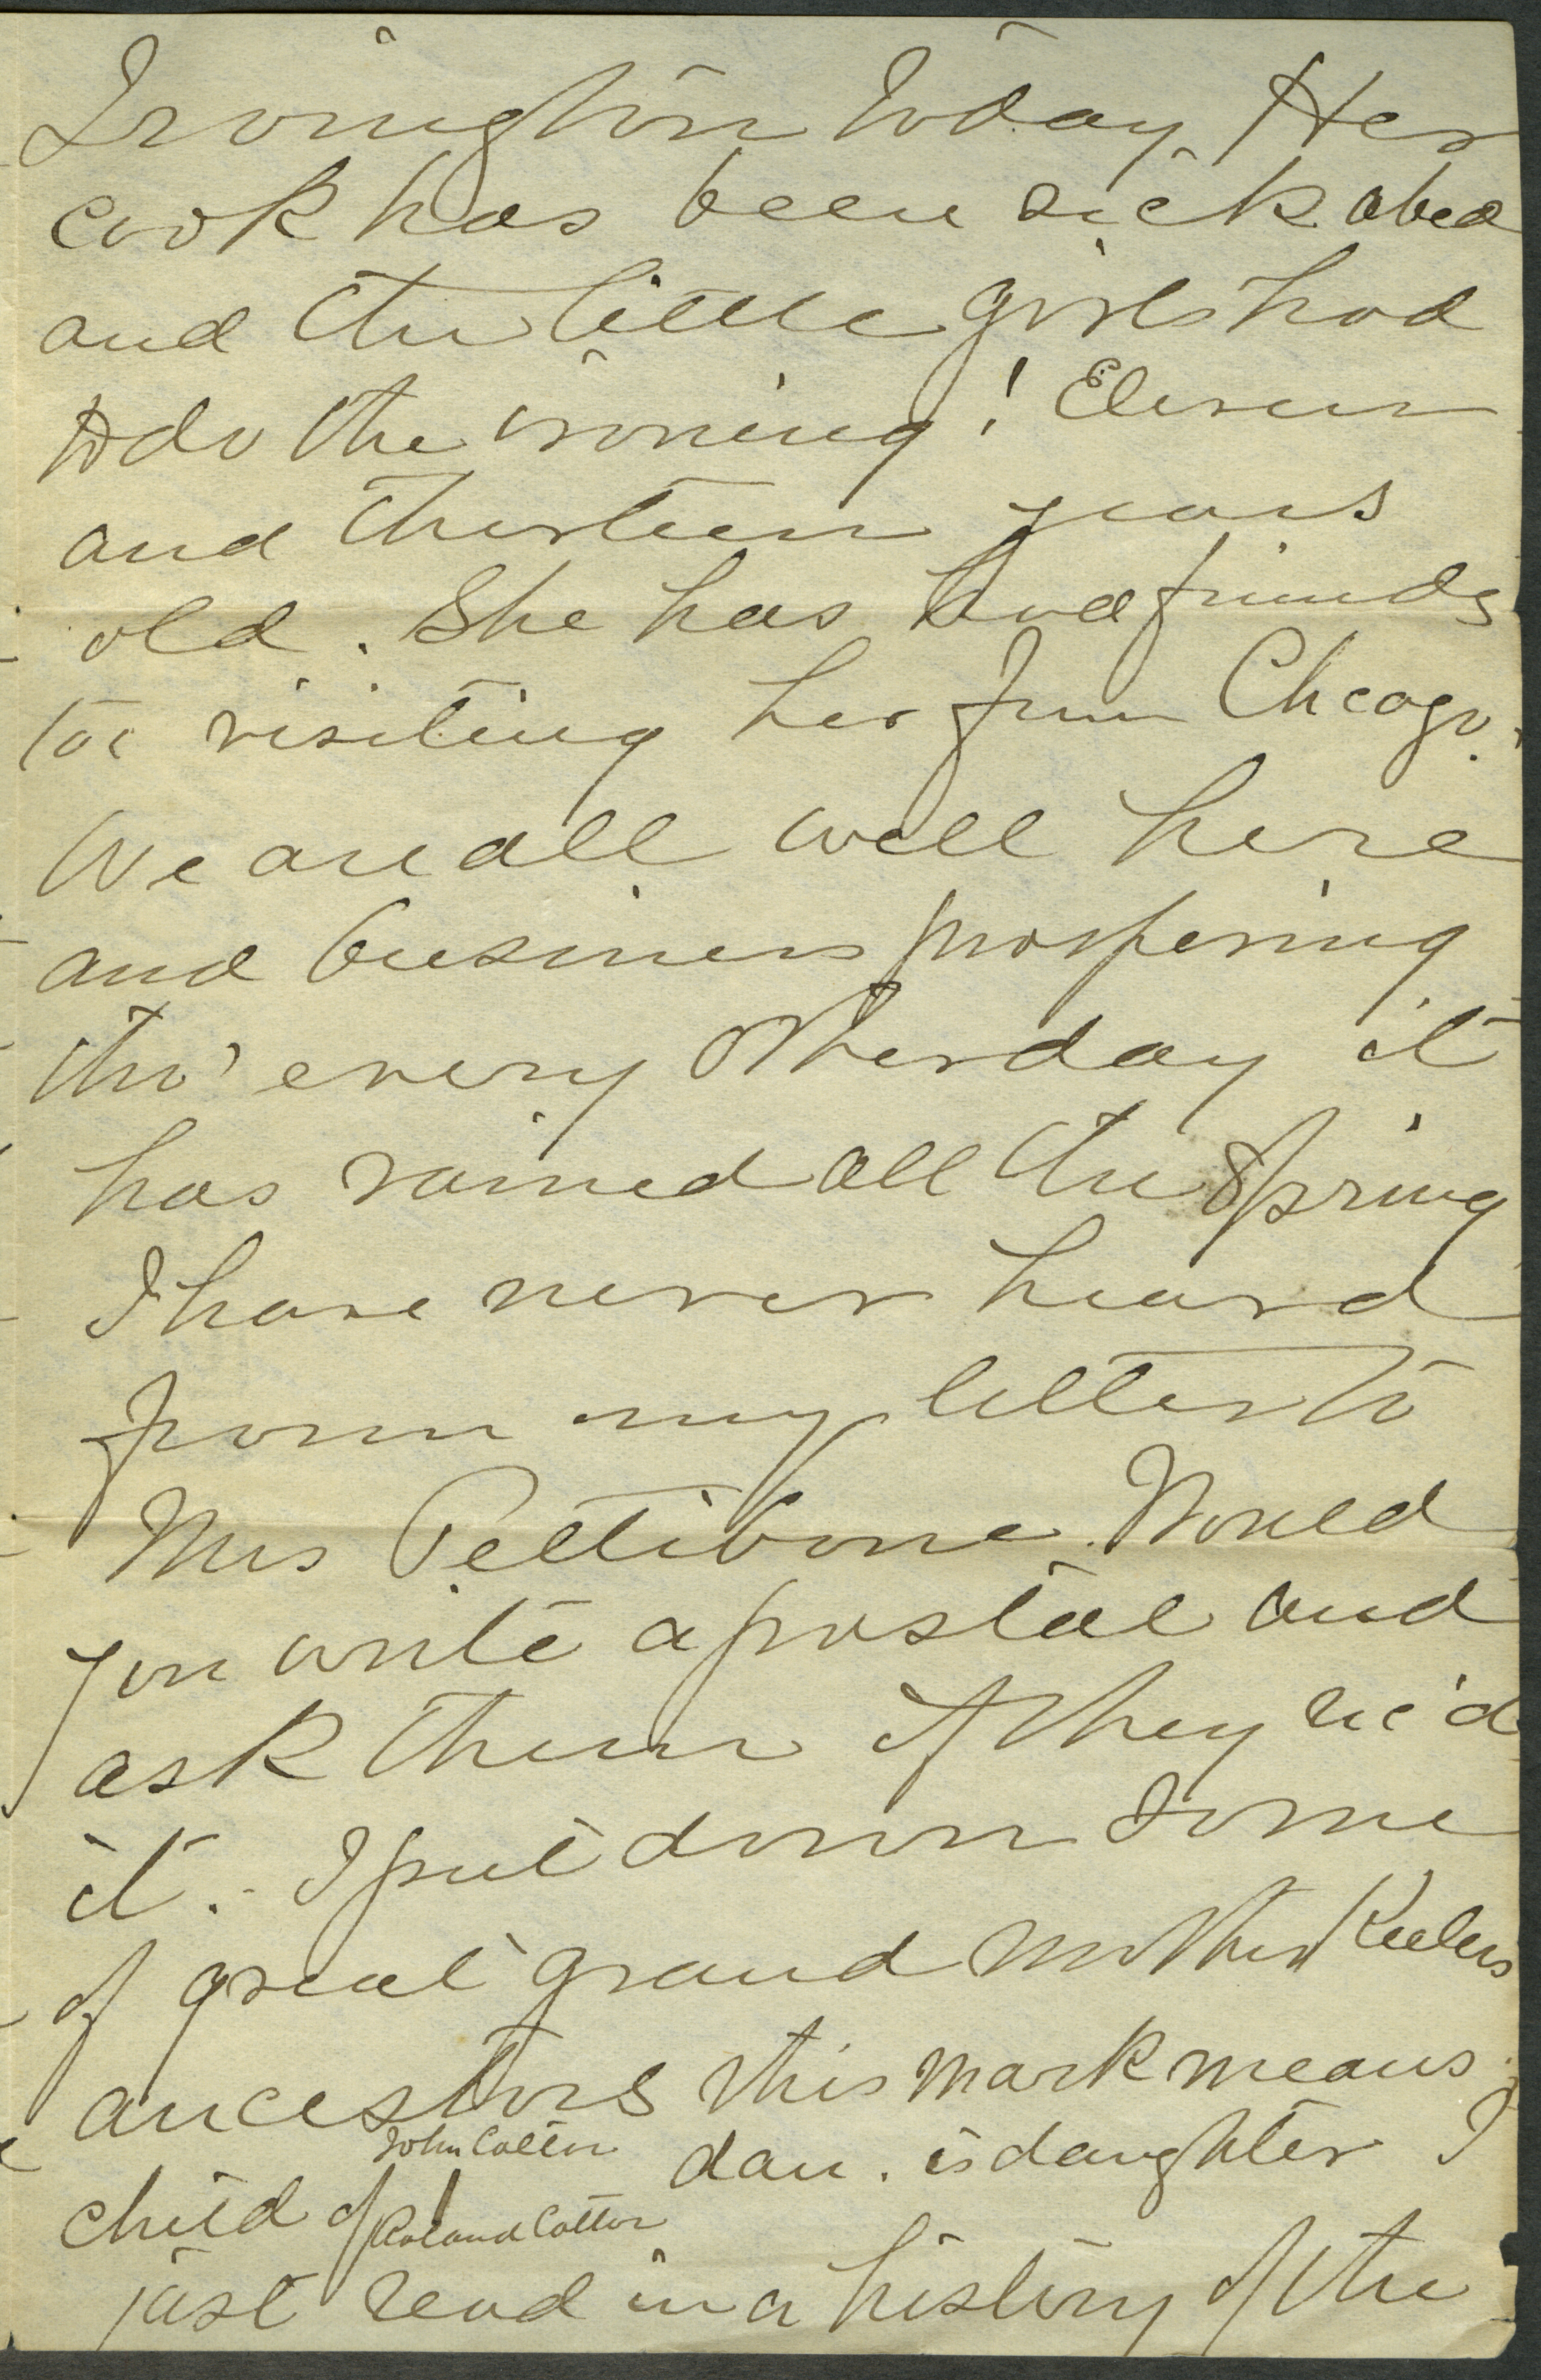 Irvington today Her
cook has been sick abed
and the little girls had
to do the ironing! Eleven
and thirteen years
old. She has had friends
too visiting her from Chicago.
We are all well here
and business prospering
tho' every other day it
has rained all the Spring
I have never heard
from my letter to
Mrs Pettibone. Would
you write a postal and
ask them if they rec'd
it. - I put down some
of great grand mother Keelers
ancestors this mark means
John Cotton
child of | dau. is daughter I
Roland Cotton
just read in a history of the